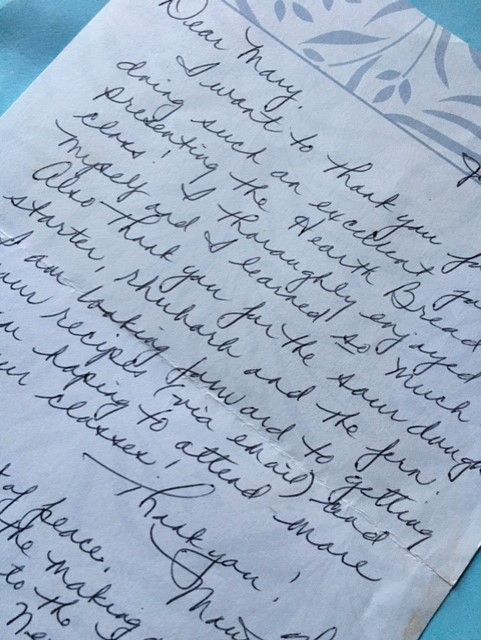 Dear Mary,
I want to thank you for
doing such an excellent
presenting the Hearth Bread
class! I thoroughly enjoyed
myself and I learned so much
Also thank you for the sour dough
starter, rhubarb and the fern.
I am looking forward to getting
your recipes (via email) and
hoping to attend more
classes!
Thank you!
of peace.
the making
to the